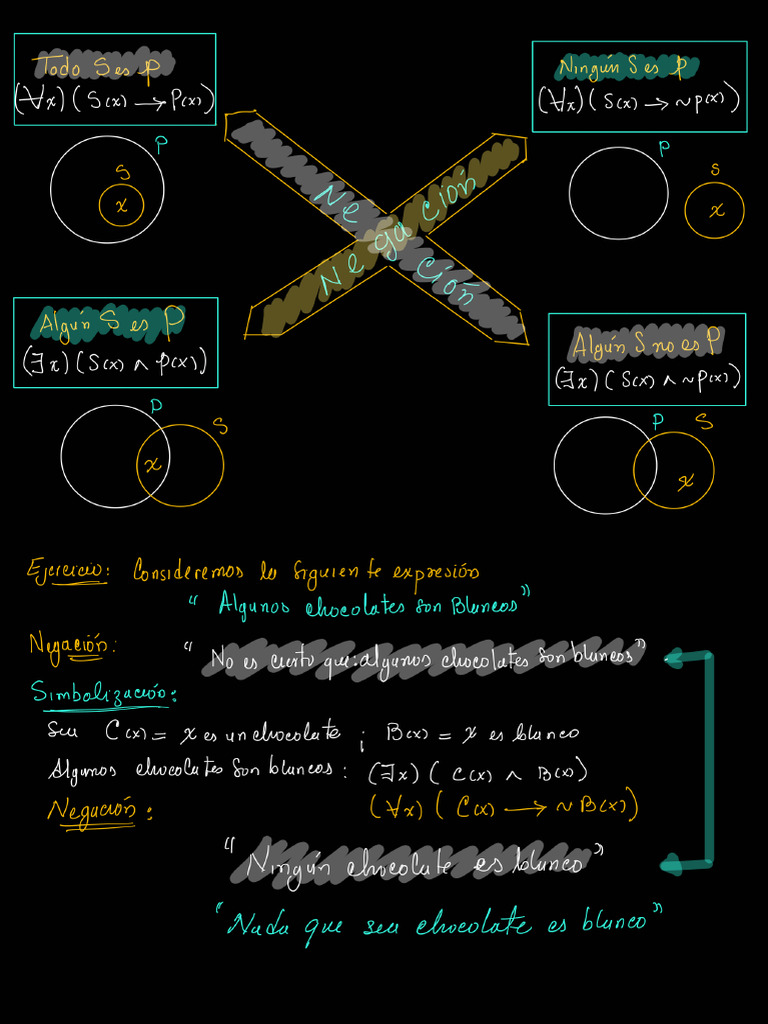 Todo S es P
(∀x)(S(x) → P(x))
P
S
x
Ningún S es P
(∀x)(S(x) → ~P(x))
P
S
x
Negación
Negación
Algún S es P
(∃x)(S(x) ∧ P(x))
P
S
x
Algún S no es P
(∃x)(S(x) ∧ ~P(x))
P
S
x
Ejercicio: Consideremos la siguiente expresión
“Algunos chocolates son Blancos”
Negación: “No es cierto que: algunos chocolates son blancos”
Simbolización:
Sea C(x) = x es un chocolate ; B(x) = x es blanco
Algunos chocolates son blancos: (∃x)(C(x) ∧ B(x))
Negación: (∀x)(C(x) → ~B(x))
“Ningún chocolate es blanco”
“Nada que sea chocolate es blanco”